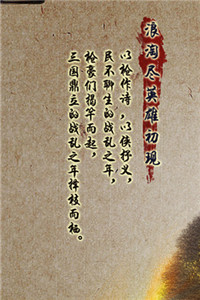 浪淘尽英雄初现
以枪作诗，以侠抒义，
民不聊生的战乱之年，
枪豪们揭竿而起，
三国鼎立的战乱之年择枝而栖。